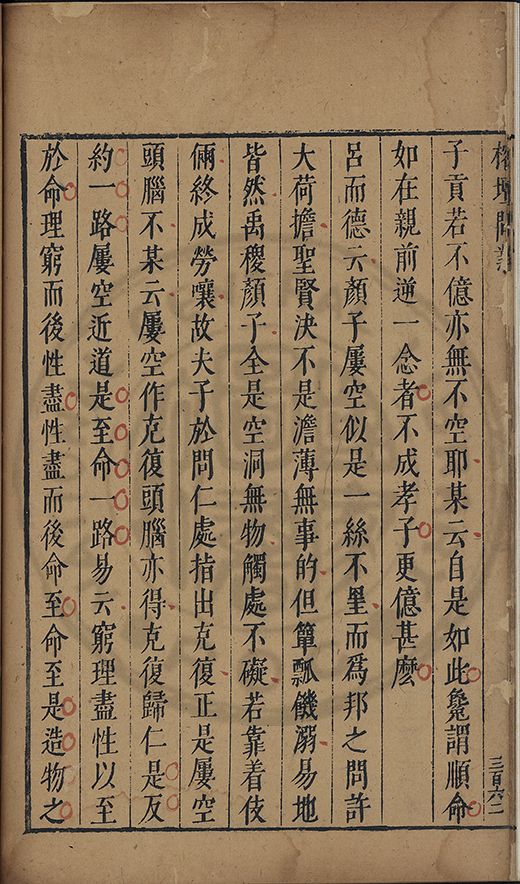 榕壇問業
三百六二
子貢若不億亦無不空耶某云自是如此纔謂順命
如在親前逆一念者不成孝子更億甚麽
呂而德云顏子屢空似是一絲不罣而為邦之問許
大荷擔聖賢決不是澹薄無事的但簞瓢饑溺易地
皆然禹稷顏子全是空洞無物觸處不礙若靠着伎
倆終成勞嚷故夫子於問仁處指出克復正是屢空
頭腦不某云屢空作克復頭腦亦得克復歸仁是反
約一路屢空近道是至命一路易云窮理盡性以至
於命理窮而後性盡性盡而後命至命至是造物之